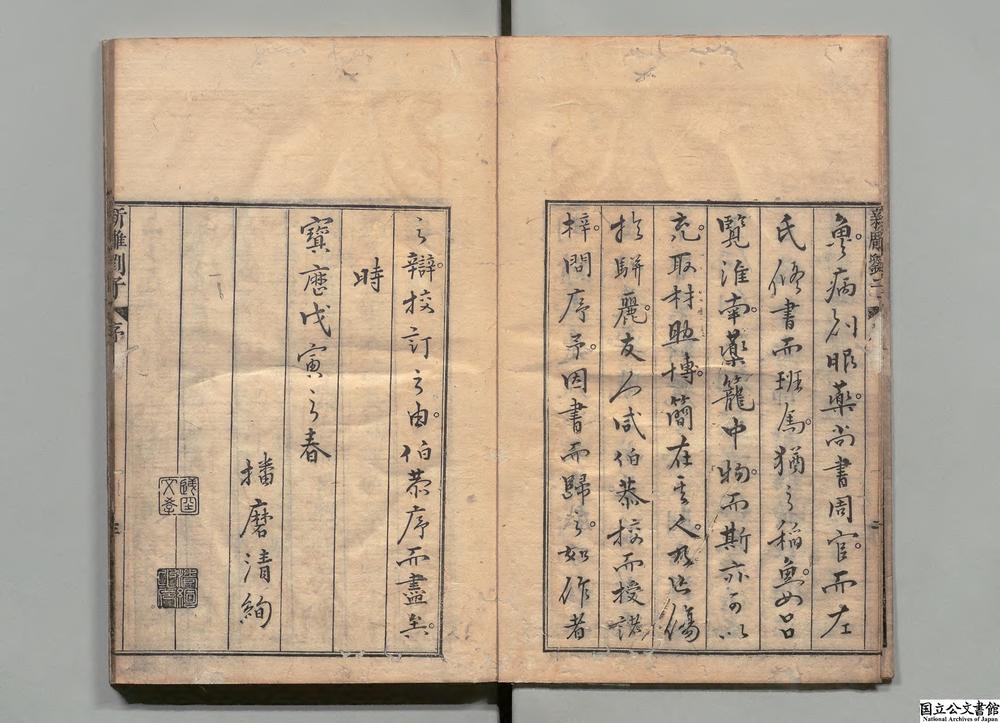 魚。病則眼藥。尚書周官。而左
氏脩書而班馬。猶之稻魚。如呂
覽淮南。藥籠中物。而斯亦可以
充。取材助博。簡在其人。
於駢麗。友人咸伯恭校而授諸
梓。問序予。因書而歸之。如作者
之辯。校訂之由。伯恭序而盡矣。
時
寶曆戊寅之春
播磨清絢
新雕劉子
序
国立公文書館
National Archives of Japan